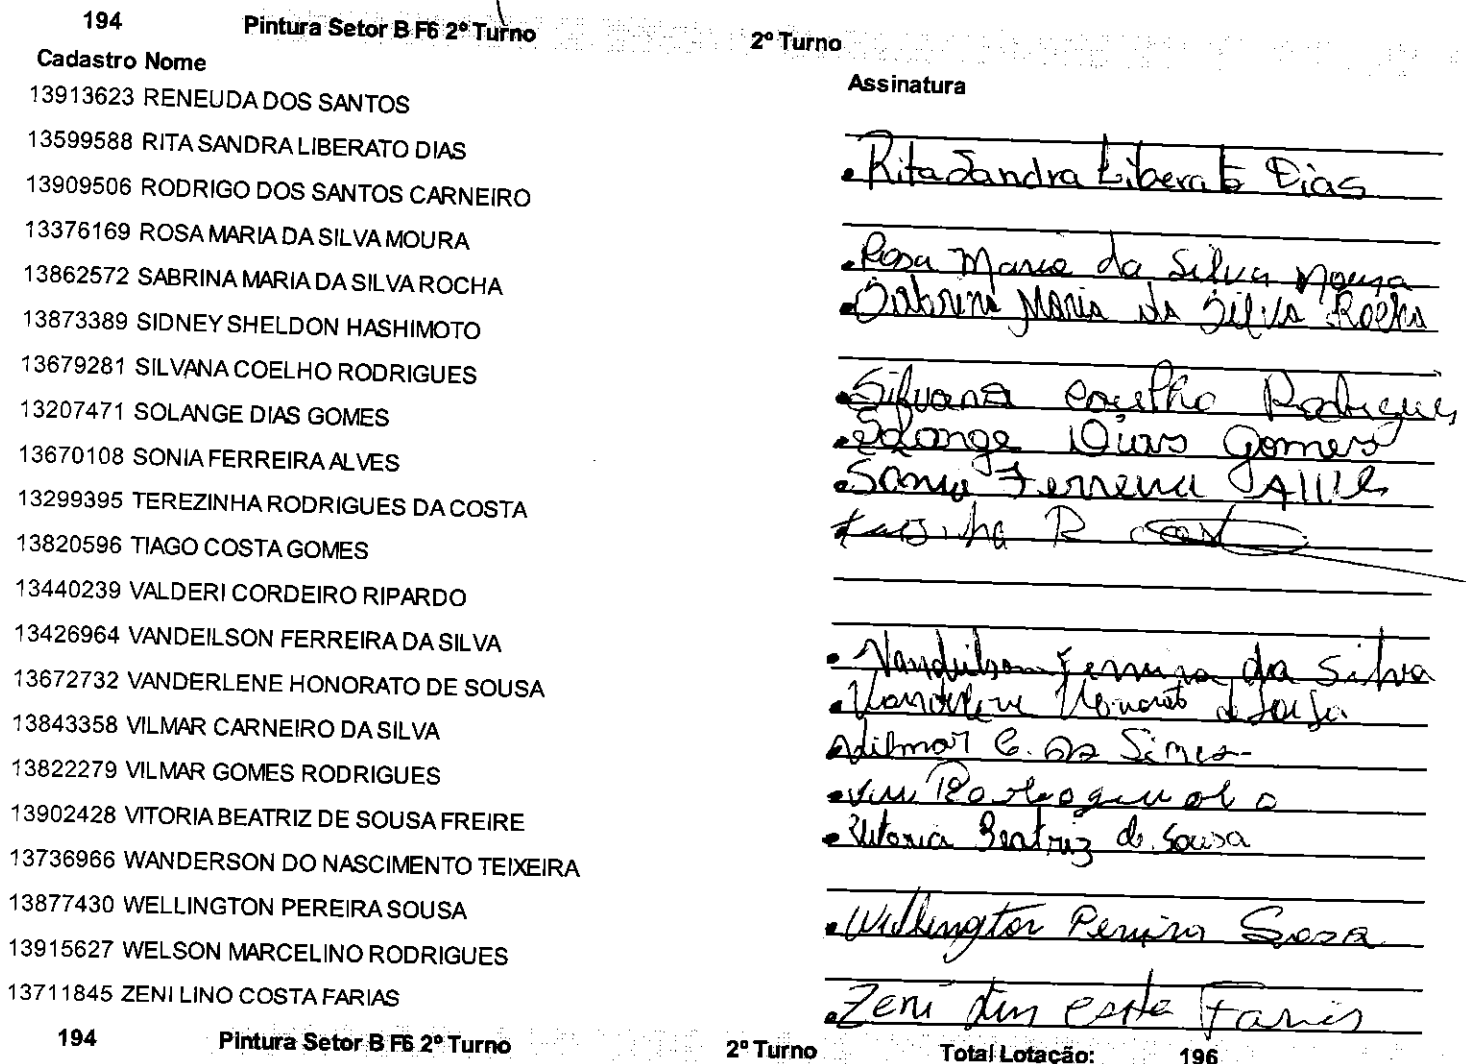 194 Pintura Setor B F6 2º Turno 2º Turno
Cadastro Nome Assinatura
13913623 RENEUDA DOS SANTOS
13599588 RITA SANDRA LIBERATO DIAS Rita Sandra Liberato Dias
13909506 RODRIGO DOS SANTOS CARNEIRO
13376169 ROSA MARIA DA SILVA MOURA Rosa Maria da Silva Moura
13862572 SABRINA MARIA DA SILVA ROCHA Sabrina Maria da Silva Rocha
13873389 SIDNEY SHELDON HASHIMOTO
13679281 SILVANA COELHO RODRIGUES Silvana Coelho Rodrigues
13207471 SOLANGE DIAS GOMES Solange Dias Gomes
13670108 SONIA FERREIRA ALVES Sonia Ferreira Alves
13299395 TEREZINHA RODRIGUES DA COSTA R
13820596 TIAGO COSTA GOMES
13440239 VALDERI CORDEIRO RIPARDO
13426964 VANDEILSON FERREIRA DA SILVA Vandeilson Ferreira da Silva
13672732 VANDERLENE HONORATO DE SOUSA Vanderlene Honorato d Sousa
13843358 VILMAR CARNEIRO DA SILVA Vilmar C. da
13822279 VILMAR GOMES RODRIGUES
13902428 VITORIA BEATRIZ DE SOUSA FREIRE Vitoria Beatriz de Sousa
13736966 WANDERSON DO NASCIMENTO TEIXEIRA
13877430 WELLINGTON PEREIRA SOUSA Wellington Pereira
13915627 WELSON MARCELINO RODRIGUES
13711845 ZENI LINO COSTA FARIAS Zeni
194 Pintura Setor B F6 2º Turno 2º Turno Total Lotação: 196